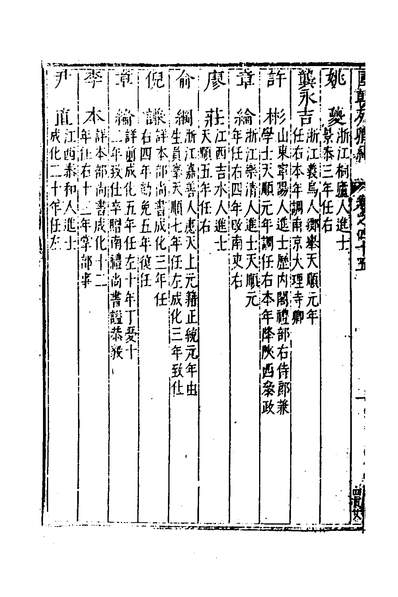 國朝列卿紀 卷之四十五
姚夔 浙江桐廬人進士
景泰三年任右
龔永吉 浙江義烏人鄉舉天順元年
任右本年調南京大理寺卿
許彬 山東寧陽人進士歷內閣禮部右侍郎兼
學士天順元年調任右本年降陝西叅政
章綸 浙江樂清人進士天順元
年任右四年改南吏右
廖莊 江西吉水人進士
天順五年任右
俞綱 浙江嘉善人應天上元籍正統元年由
生員舉天順七年任左成化三年致仕
倪謙 詳本部尚書成化三年任
右四年劾免五年復任
章綸 詳前成化五年任左十年丁憂十
二年致仕卒贈南禮尚書謚恭毅
李本 詳本部尚書成化十二
年任右十三年掌部事
尹直 江西泰和人進士
成化二十年任左